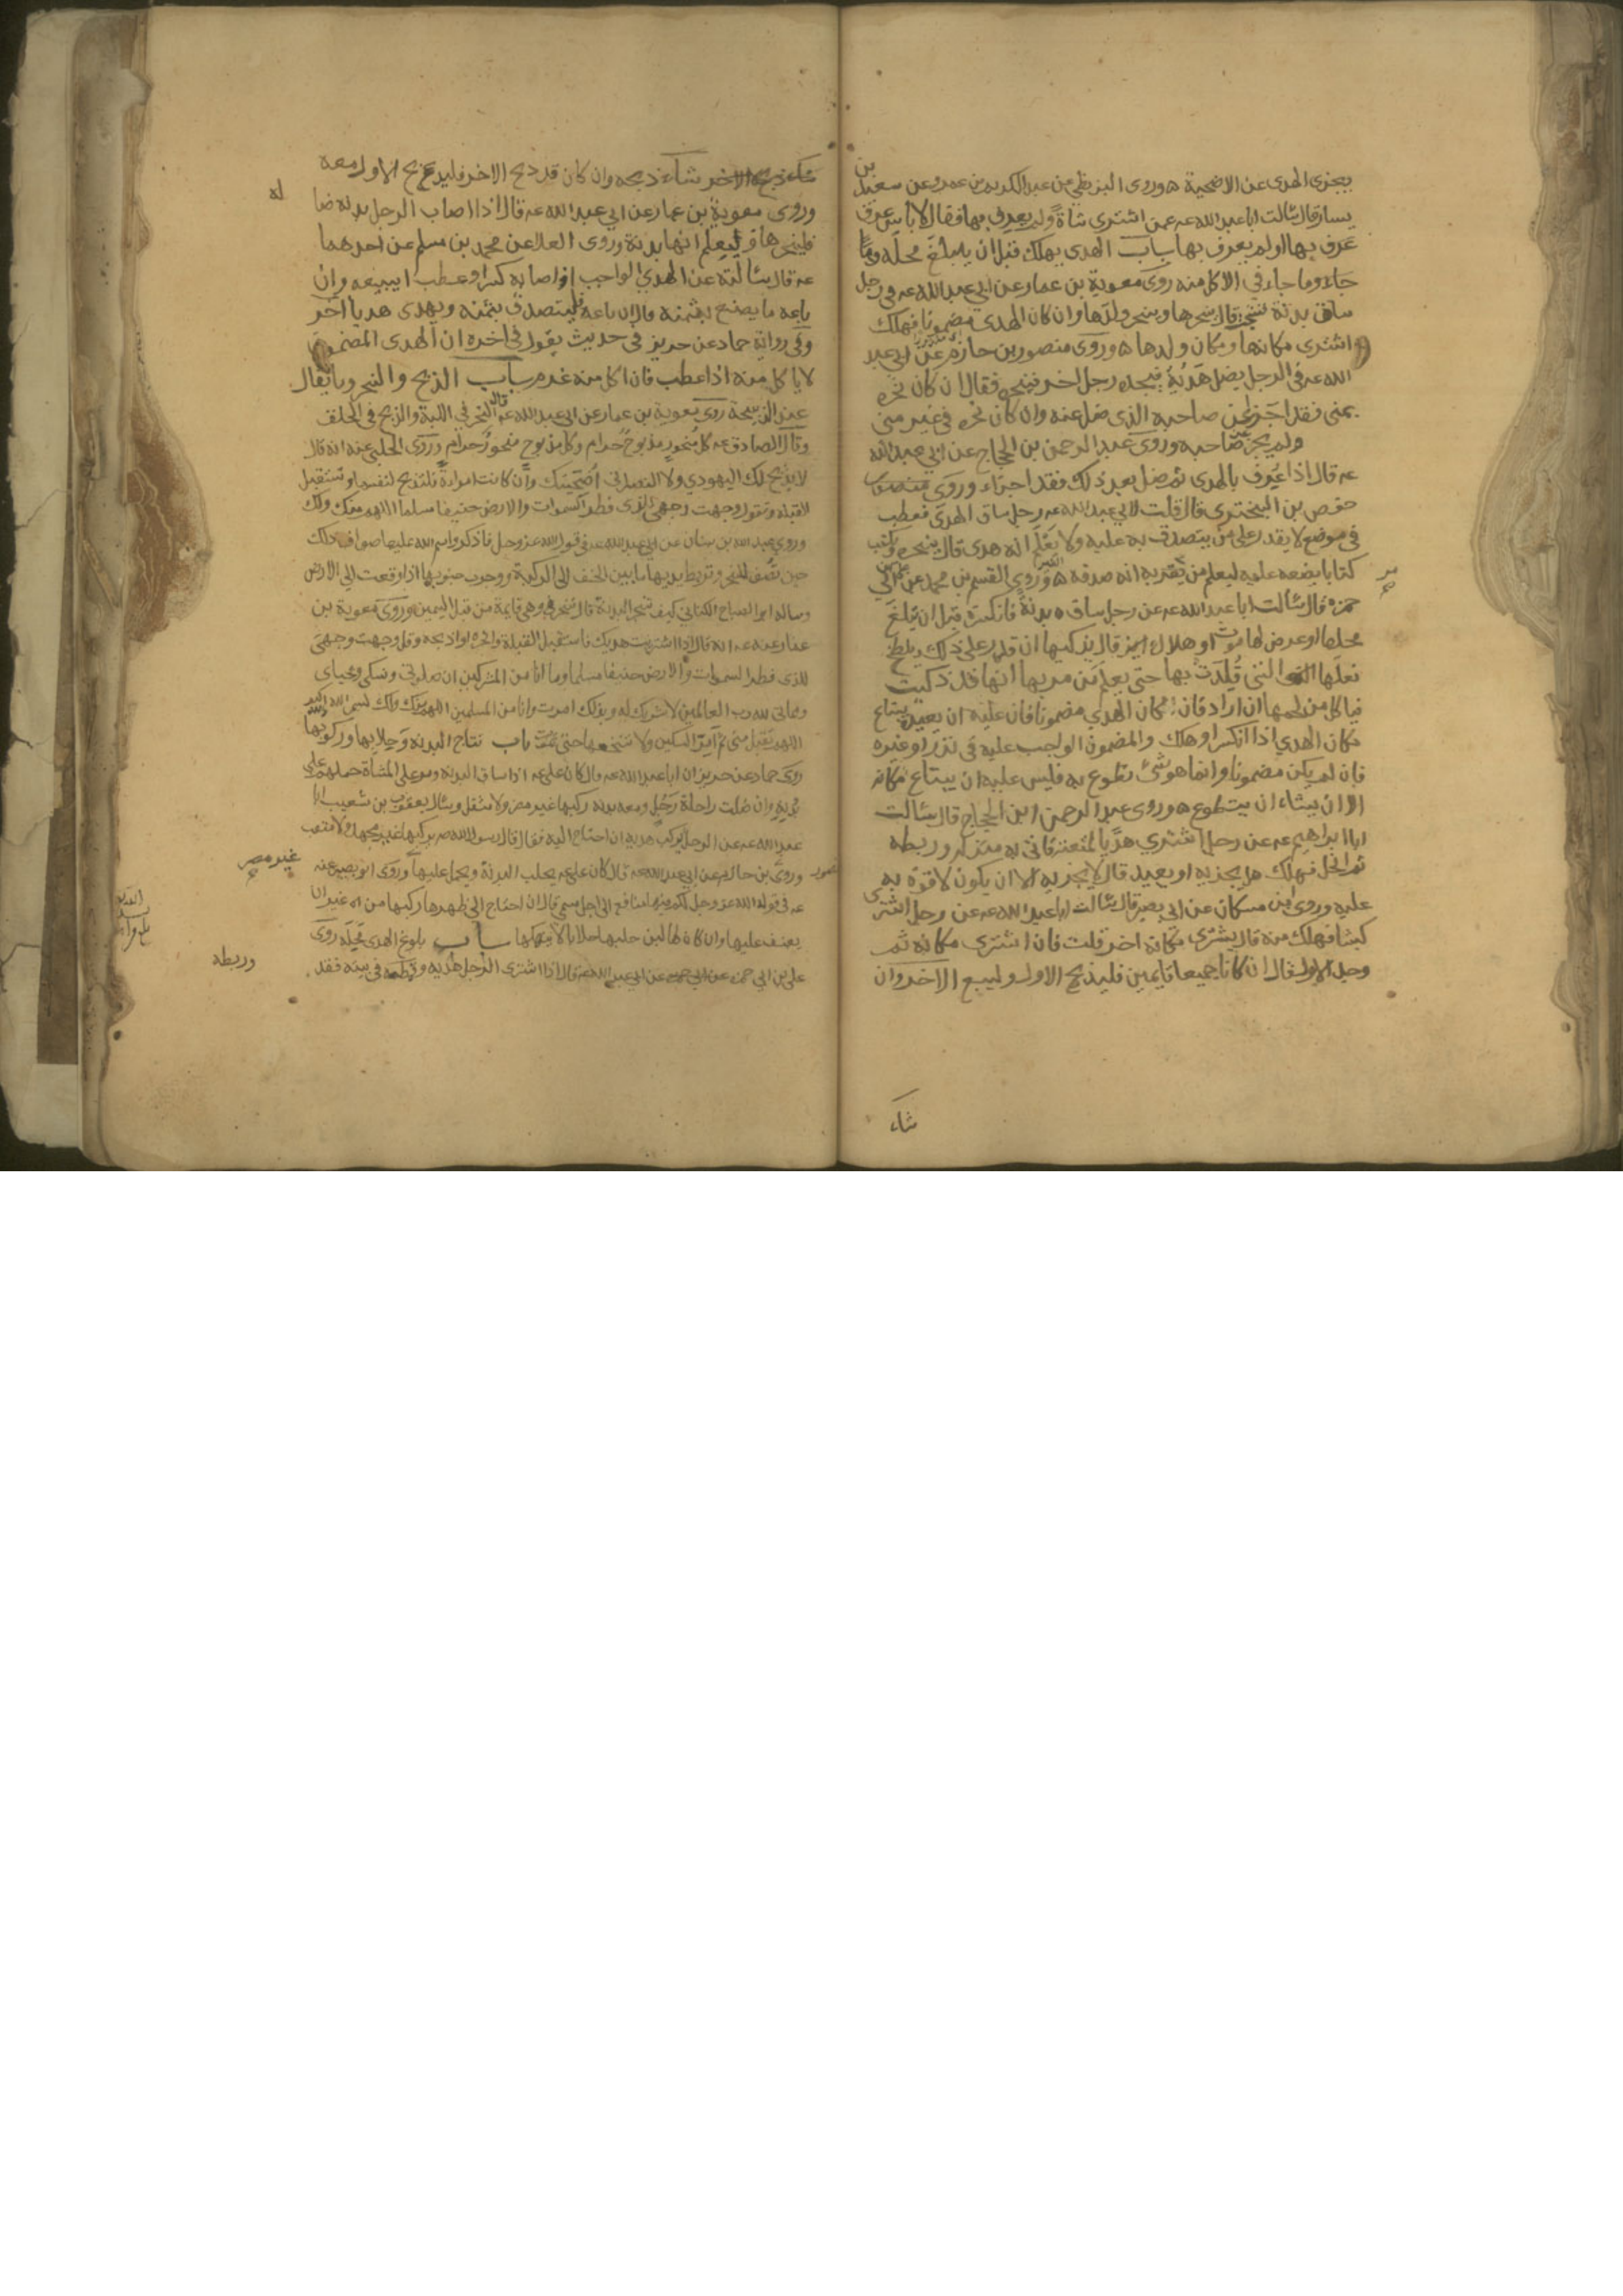 يجزى الهدى عن الاضحية ه وروى البزنطي عن عبد الكريم بن عمرو عن سعيد بن
يسار قال سالت ابا عبد الله عه عمن اشترى شاة ولم يعرف بها فقال لا باس عرف
عرف بها او لم يعرف بها باب الهدى يهلك قبل ان يبلغ محله وما
جاء وما جاء في الاكل منه روى معوية بن عمار عن ابي عبد الله عه في رجل
ساق بدنة فنتجت قال ينحرها وينحر ولدها وان كان الهدى مضمونا فهلك
اشترى مكانها ومكان ولدها ه وروى منصور بن حازم عن ابي عبد
الله عه في الرجل يضل هديه فيجده رجل اخر فينحره فقال ان كان نحره
بمنى فقد اجزا عن صاحبه الذى ضل عنه وان كان نحره في غير منى
ولم يجز عن صاحبه وروى عبد الرحمن بن الحجاج عن ابي عبد الله
عه قال اذا عرف بالهدى ثم ضل بعد ذلك فقد اجزاء وروى
حفص بن البخترى قال قلت لابي عبد الله عه رجل ساق الهدى فعطب
في موضع لا يقدر على من يتصدق به عليه ولا يعلم انه هدى قال ينحره ويكتب
كتابا يضعه عليه ليعلم من يمر به انه صدقه ه وروى القسم بن محمد عن علي بن ابي
حمزه قال سالت ابا عبد الله عه عن رجل ساق بدنة فانكسرت قبل ان تبلغ
محلها او عرض لها موت او هلاك قال يذكيها ان قدر على ذلك ويلطخ
نعلها التي قلدت بها حتى يعلم من مر بها انها قد ذكيت
فياكل من لحمها ان اراد فان كان الهدي مضمونا فان عليه ان يعيده يبتاع
مكان الهدي اذا انكسر او هلك والمضمون الواجب عليه في نذر او غيره
فان لم يكن مضمونا وانما هو شئ تطوع به فليس عليه ان يبتاع مكانه
الا ان يشاء ان يتطوع ه وروى عبد الرحمن ابن الحجاج قال سالت
ابا ابراهيم عه عن رجل اشترى هديا لمتعته فاتى به منزله وربطه
ثم انحل فهلك هل يجزيه او يعيد قال لا يجزيه الا ان يكون لا قوة به
عليه وروى ابن مسكان عن ابي بصير قال سالت ابا عبد الله عه عن رجل اشترى
كبشا فهلك منه قال يشترى مكانه اخر قلت فان اشترى مكانه ثم
وجد الاول قال ان كانا جميعا قايمين فليذبح الاول وليبع الاخر وان
شاء
شاء ذبحه وان كان قد ذبح الاخر فليذبح الاول معه
وروى معوية بن عمار عن ابي عبد الله عه قال اذا اصاب الرجل بدنه ضا
له
فلينحرها وليعلم انها بدنة وروى العلا عن محمد بن مسلم عن احدهما
عه قال سالته عن الهدي الواجب اذا اصابه كسر او عطب ايبيعه وان
باعه ما يصنع بثمنه قال ان باعه فليتصدق بثمنه ويهدى هديا اخر
وفي رواية حماد عن حريز في حديث يقول في اخره ان الهدى المضمون
لا ياكل منه اذا عطب فان اكل منه غرم باب الذبح والنحر وما يقال
عند الذبيحة روى معوية بن عمار عن ابي عبد الله عه قال النحر في اللبة والذبح في الحلق
وقال الصادق عه كل منحور مذبوح حرام وكل مذبوح منحور حرام وروى الحلبي عنه انه قال
لا يذبح لك اليهودي ولا النصراني اضحيتك وان كانت امراة فلتذبح لنفسها وتستقبل
القبله وتقول وجهت وجهي للذى فطر السموات والارض حنيفا مسلما اللهم منك ولك
وروى عبد الله بن سنان عن ابي عبد الله عه في قول الله عز وجل فاذكروا اسم الله عليها صواف ذلك
حين تصف للنحر وتربط يديها ما بين الخف الى الركبة ووجوب جنوبها اذا وقعت الى الارض
وساله ابو الصباح الكناني كيف تنحر البدنة قال تنحر وهي قايمة من قبل اليمين وروى معوية بن
عمار عنه عه انه قال اذا اشتريت هديك فاستقبل القبلة وانحره او اذبحه وقل وجهت وجهي
للذى فطر السموات والارض حنيفا مسلما وما انا من المشركين ان صلوتي ونسكى ومحياى
ومماتى لله رب العالمين لا شريك له وبذلك امرت وانا من المسلمين اللهم منك ولك بسم الله والله اكبر
اللهم تقبل منى ثم امر السكين ولا تنخعها حتى تموت باب نتاج البدنه وحلابها وركوبها
روى حماد عن حريز ان ابا عبد الله عه قال كان علي عه اذا ساق البدنه ومر على المشاة حملهم على
بدنه وان ضلت راحلة رجل ومعه بدنه ركبها غير مضر ولا مثقل وسال يعقوب بن شعيب ابا
عبد الله عه عن الرجل يركب هديه ان احتاج اليه فقال قال رسول الله صه يركبها غير مجهد ولا متعب
غير مضر
وروى منصور بن حازم عن ابي عبد الله عه قال كان علي عه يحلب البدنة ويحمل عليها وروى ابو بصير عنه
عه في قوله الله عز وجل لكم فيها منافع الى اجل مسمى قال ان احتاج الى ظهرها ركبها من غير ان
يعنف عليها وان كان لها لبن حلبها حلابا لا ينهكها باب بلوغ الهدى محله روى
علي بن ابي حمزه عن ابي عبد الله عه قال اذا اشترى الرجل هديه وقمطه في بيته فقد
وربطه